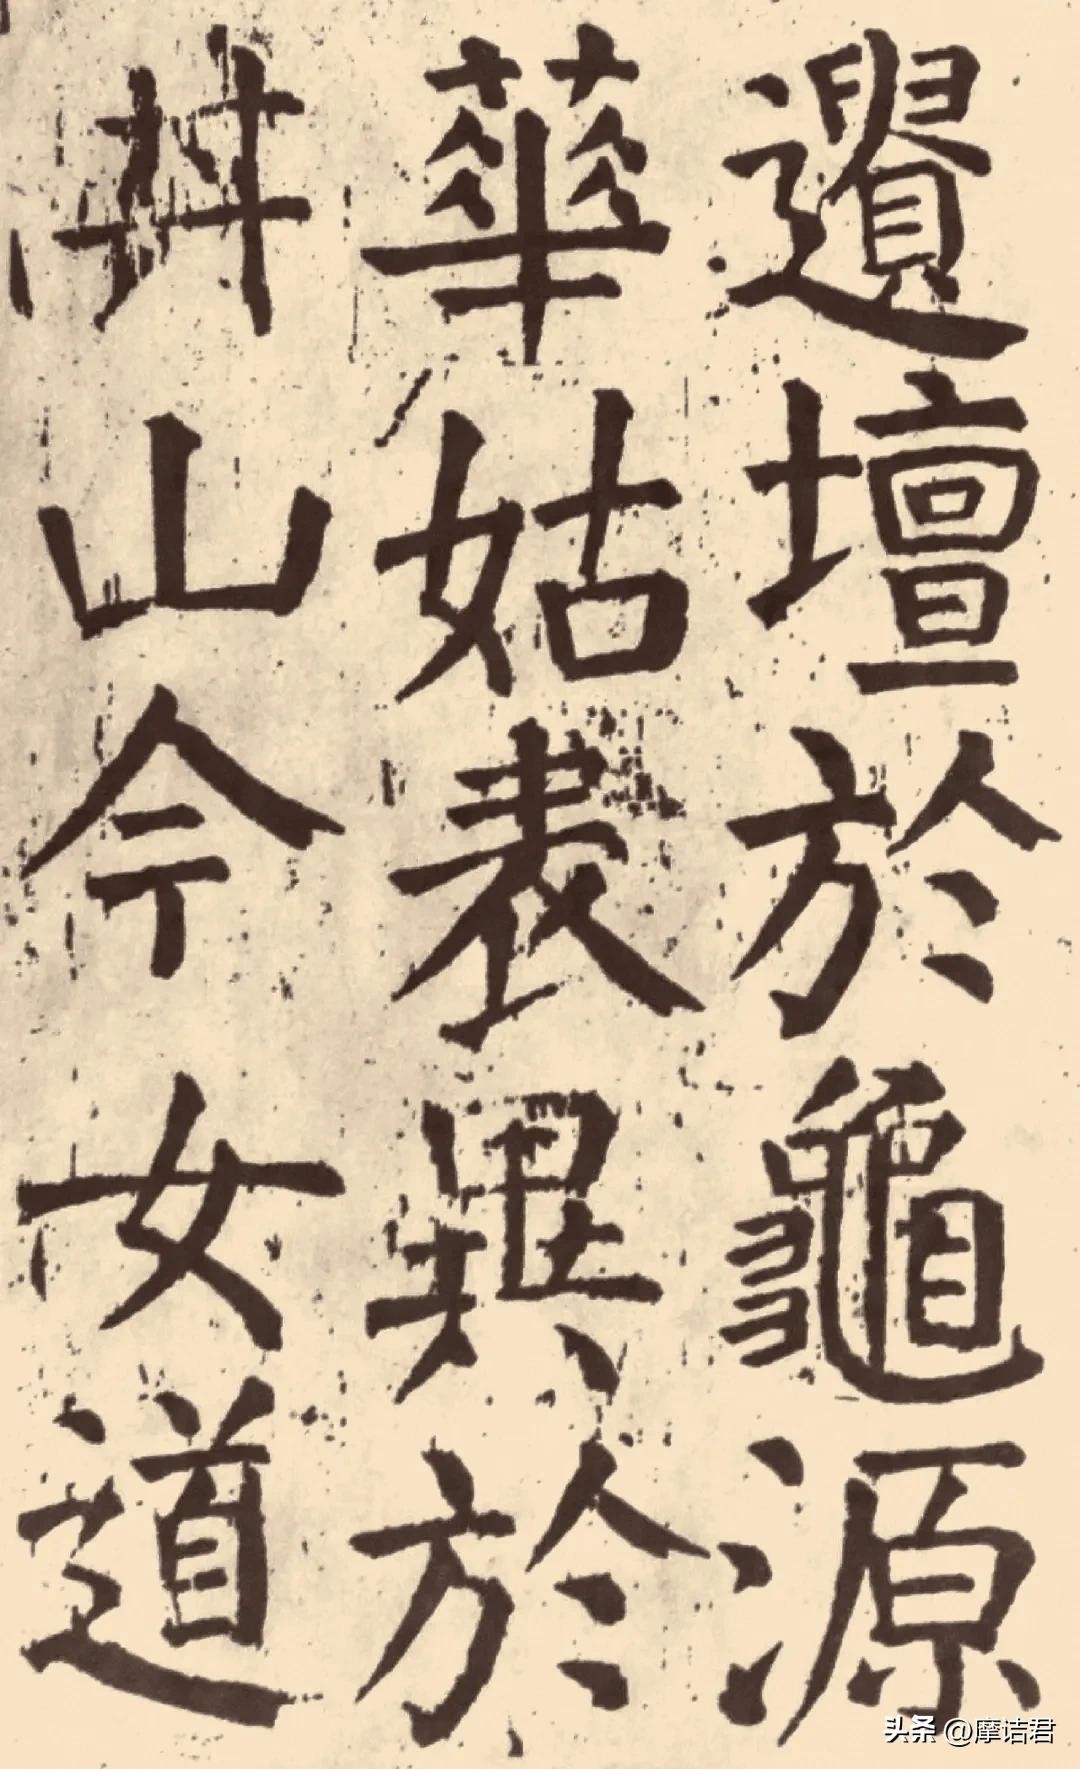 遺壇於龜源
華姑表異於
井山今女道
头条 @摩诘君